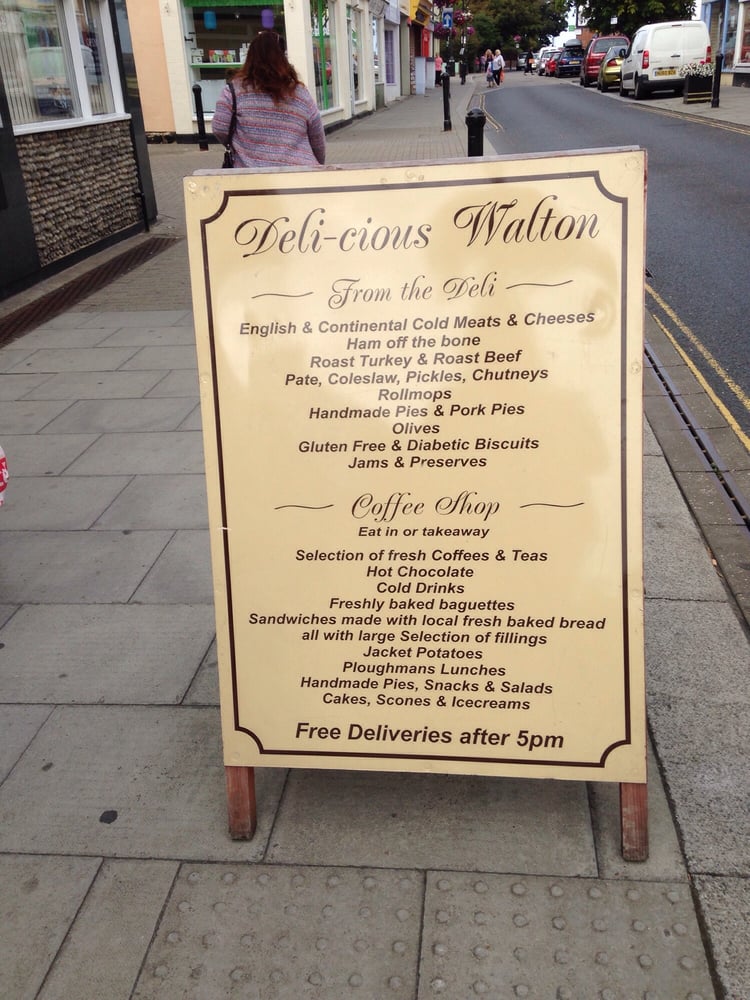 Deli-cious Walton
From the Deli
English & Continental Cold Meats & Cheeses
Ham off the bone
Roast Turkey & Roast Beef
Pate, Coleslaw, Pickles, Chutneys
Rollmops
Handmade Pies & Pork Pies
Olives
Gluten Free & Diabetic Biscuits
Jams & Preserves
Coffee Shop
Eat in or takeaway
Selection of fresh Coffees & Teas
Hot Chocolate
Cold Drinks
Freshly baked baguettes
Sandwiches made with local fresh baked bread
all with large Selection of fillings
Jacket Potatoes
Ploughmans Lunches
Handmade Pies, Snacks & Salads
Cakes, Scones & Icecreams
Free Deliveries after 5pm